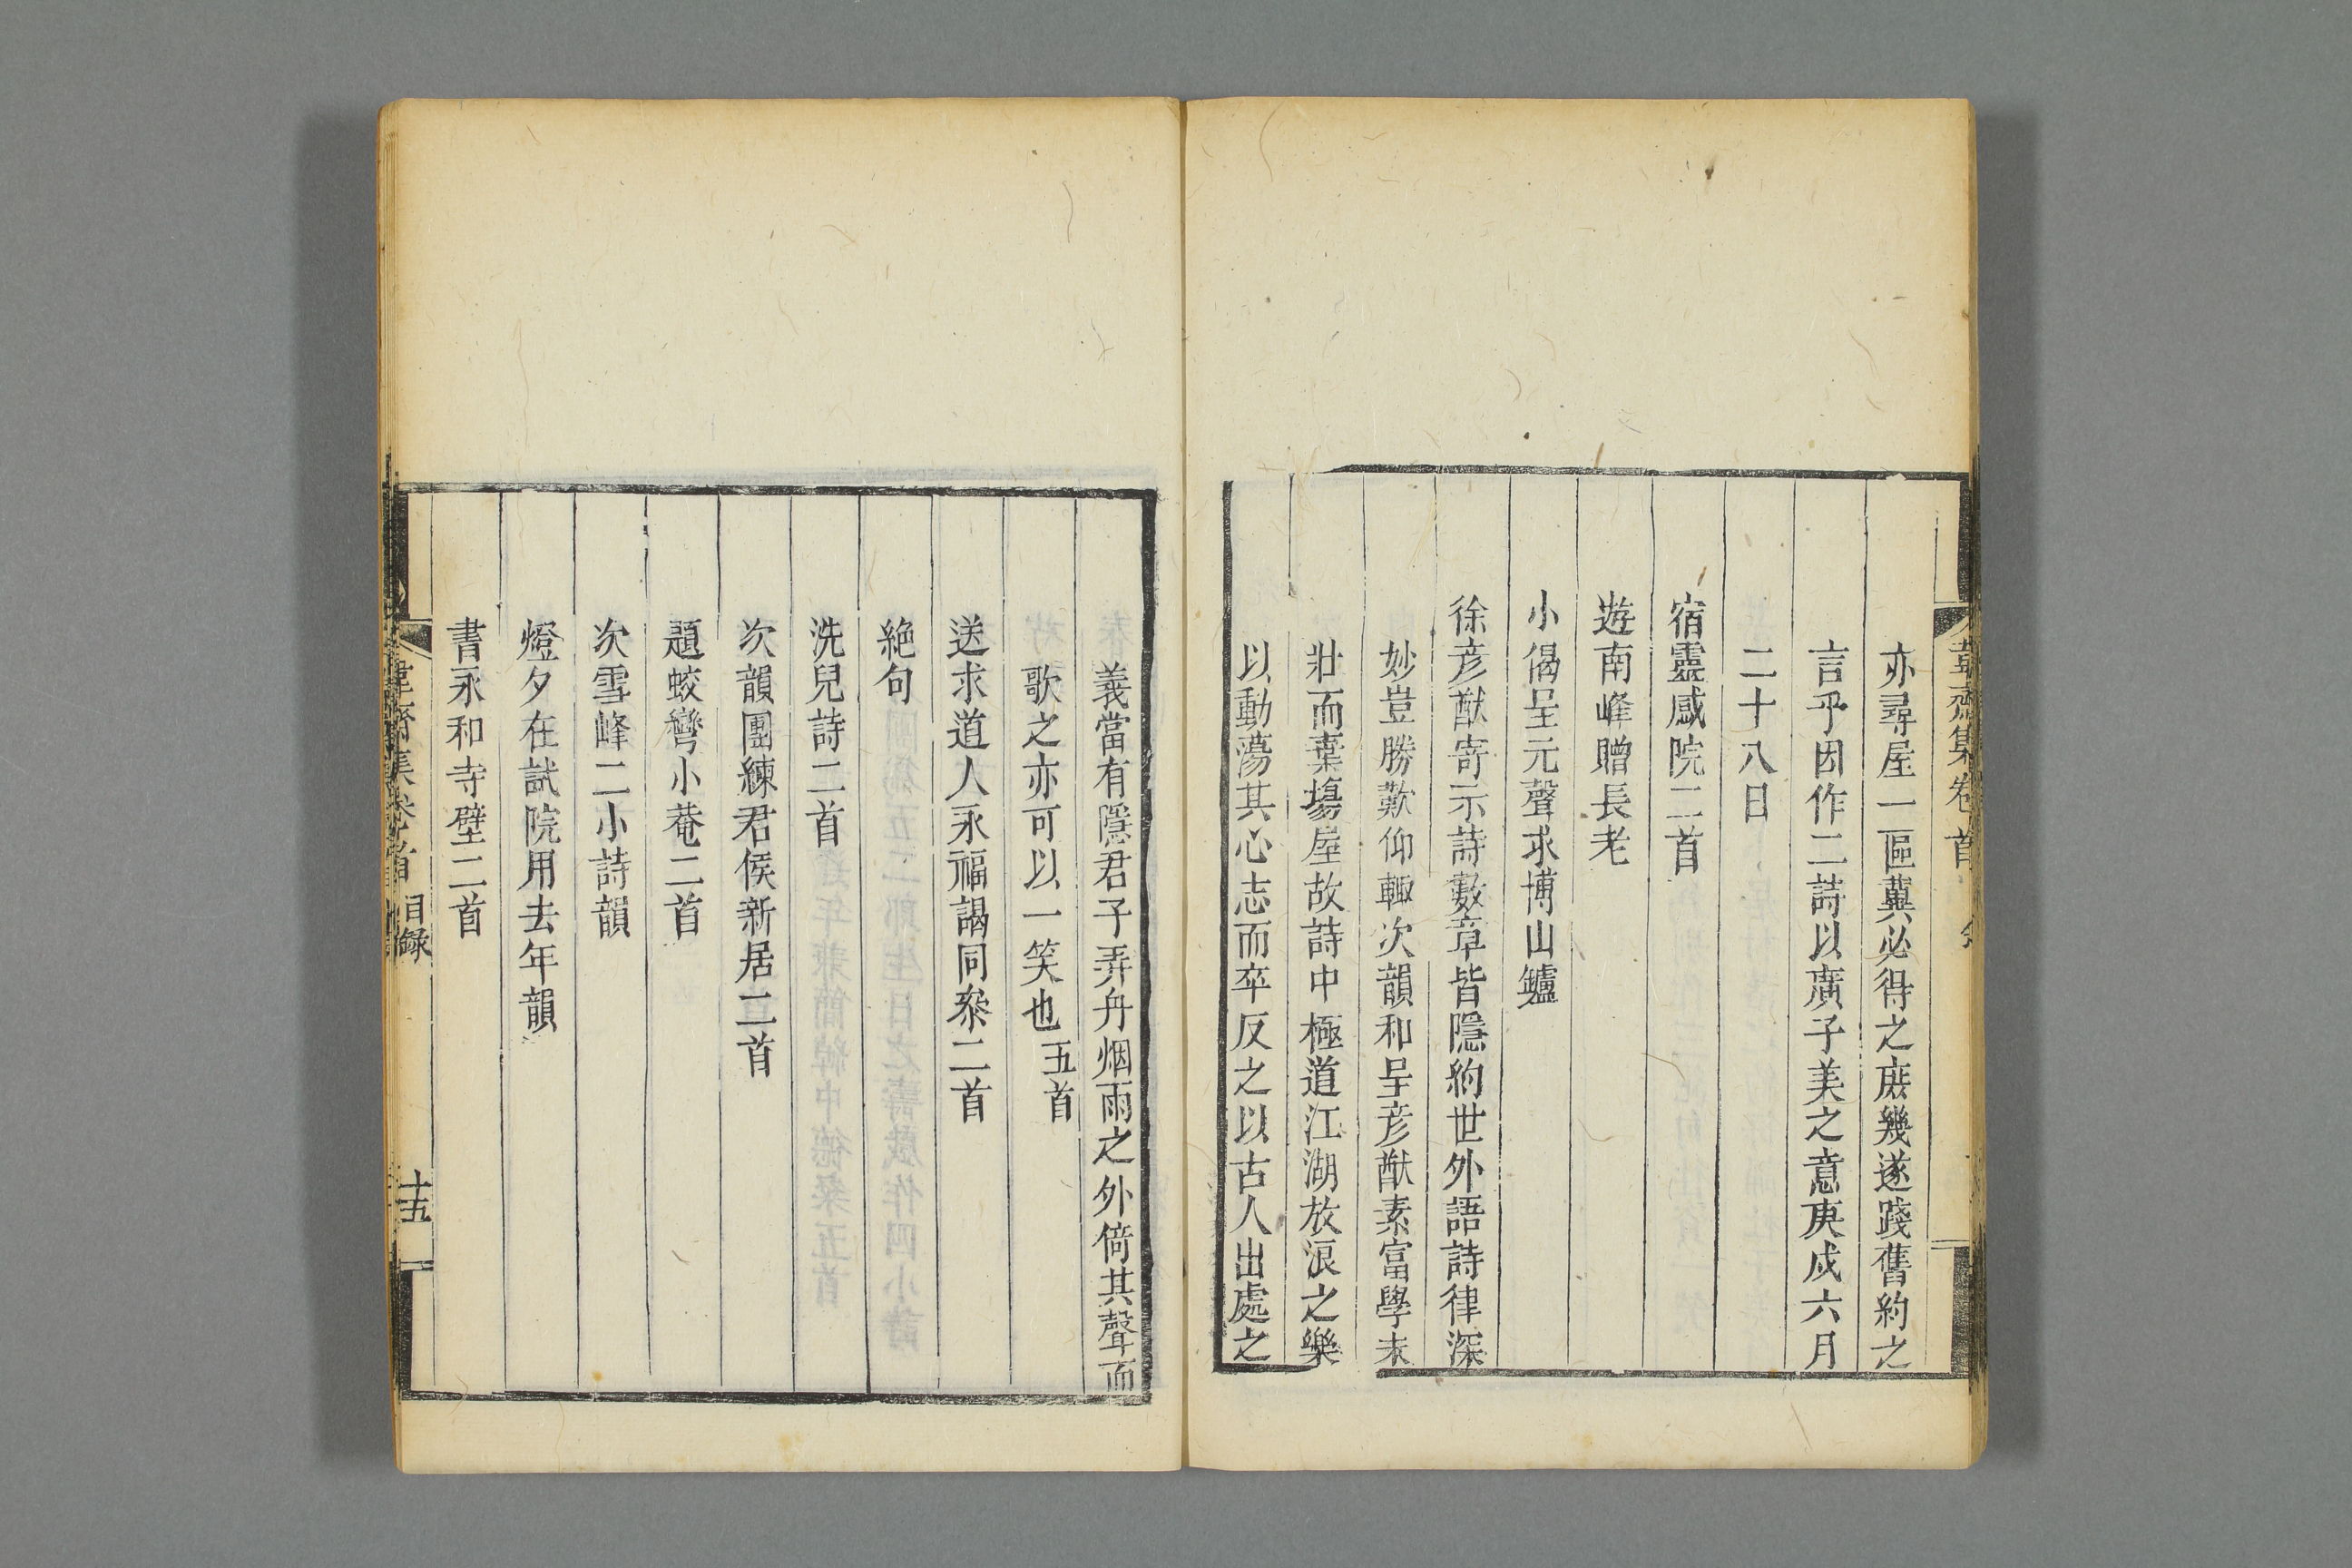 韋齋集卷首
亦尋屋一區冀必得之庶幾遂踐舊約之
言乎因作二詩以廣子美之意庚戍六月
二十八日
宿靈感院二首
遊南峰贈長老
小偈呈元聲求博山鑪
徐彦猷寄示詩數章皆隱約世外語詩律深
妙豈勝歎仰輙次韻和呈彦猷素富學未
壯而棄塲屋故詩中極道江湖放浪之樂
以動蕩其心志而卒反之以古人出處之
義當有隱君子弄舟烟雨之外倚其聲而
歌之亦可以一笑也五首
送求道人永福謁同叅二首
絶句
洗兒詩二首
次韻團練君侯新居二首
題蛟彎小菴二首
次雪峰二小詩韻
燈夕在試院用去年韻
書永和寺壁二首
韋齋集卷首 目録 十五